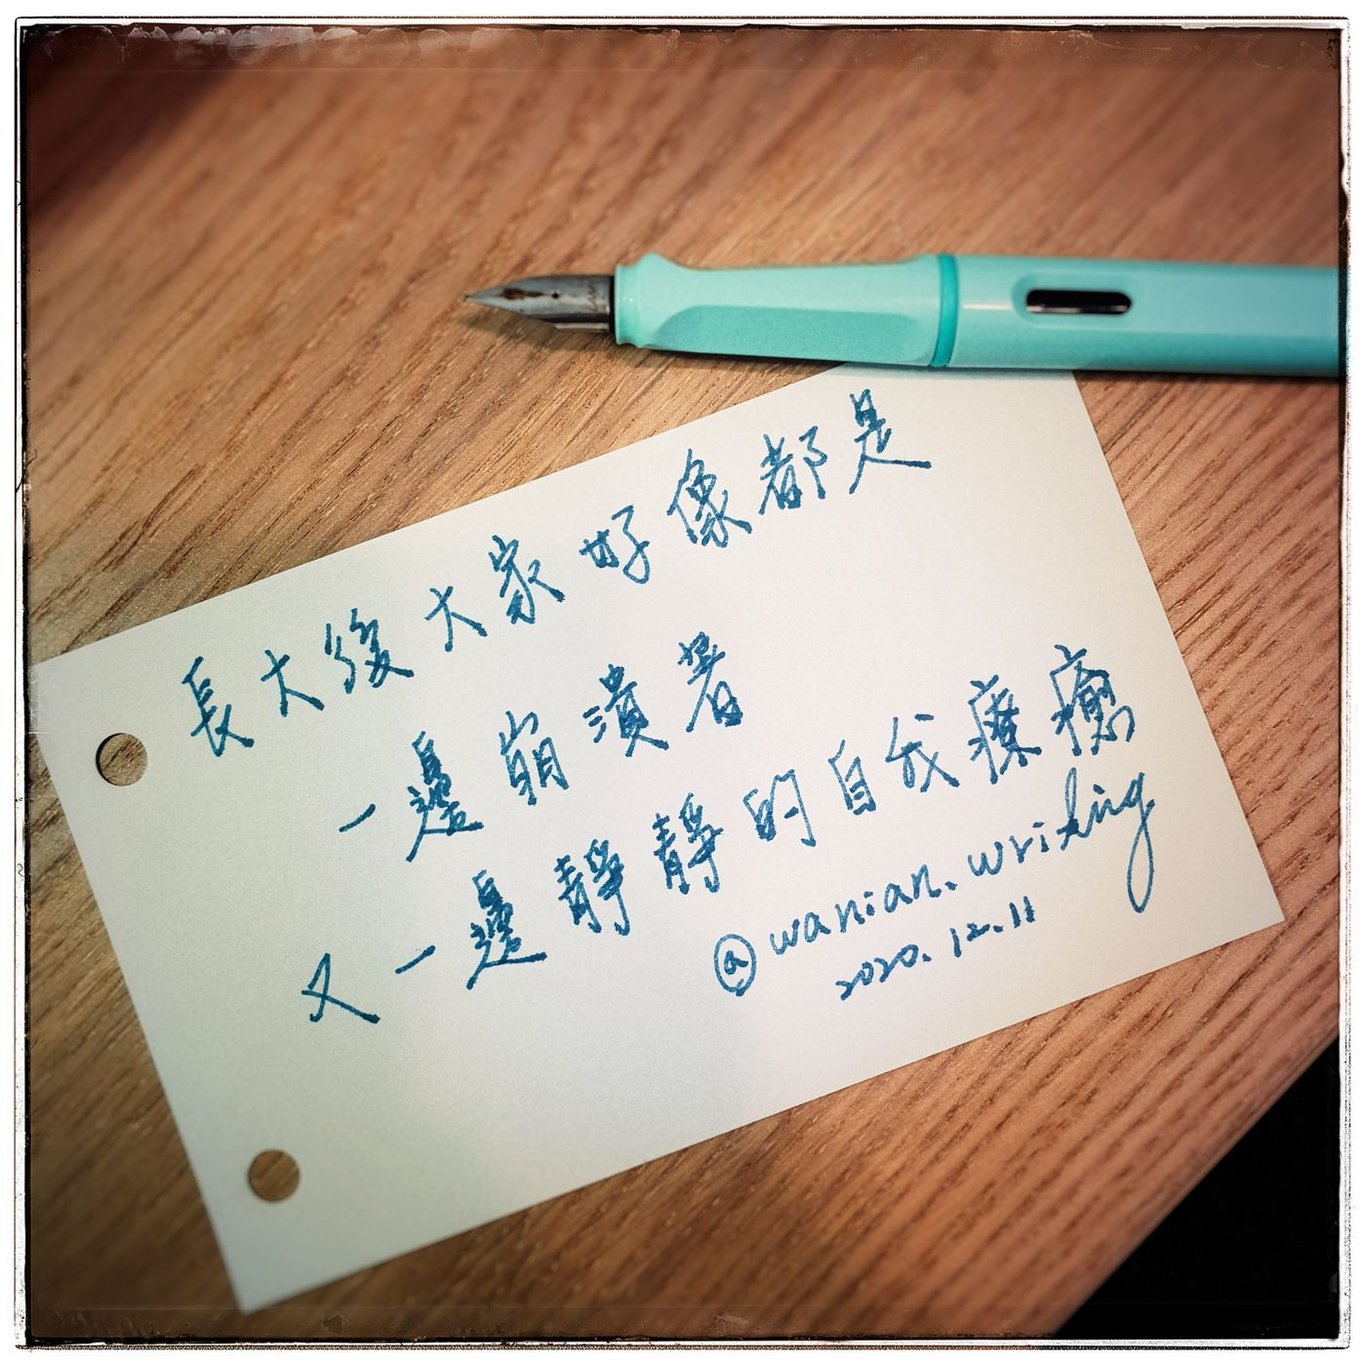 長大後大家好像都是
一邊崩潰著
又一邊靜靜的自我療癒
@wanian.writing
2020.12.11